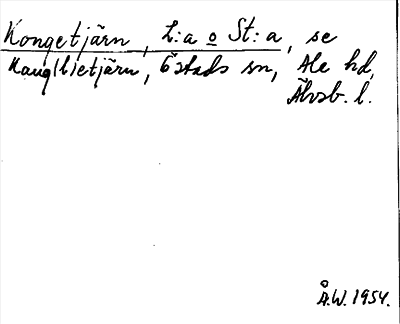 Kongetjärn, L:a o St:a, se
Kaug(l)etjärn, Östads sn, Ale hd,
Älvsb. l.
Å.W. 1954.